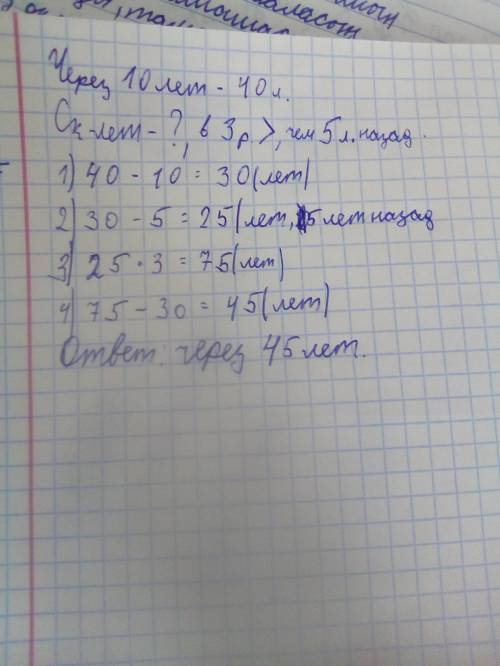 Через 10 лет - 40 л.
Ск-лет - ?, в 3р >, чем 5 л. назад.
1) 40 - 10 = 30 (лет)
2) 30 - 5 = 25 (лет, 5 лет назад
3) 25 · 3 = 75 (лет)
4) 75 - 30 = 45 (лет)
Ответ: через 45 лет.